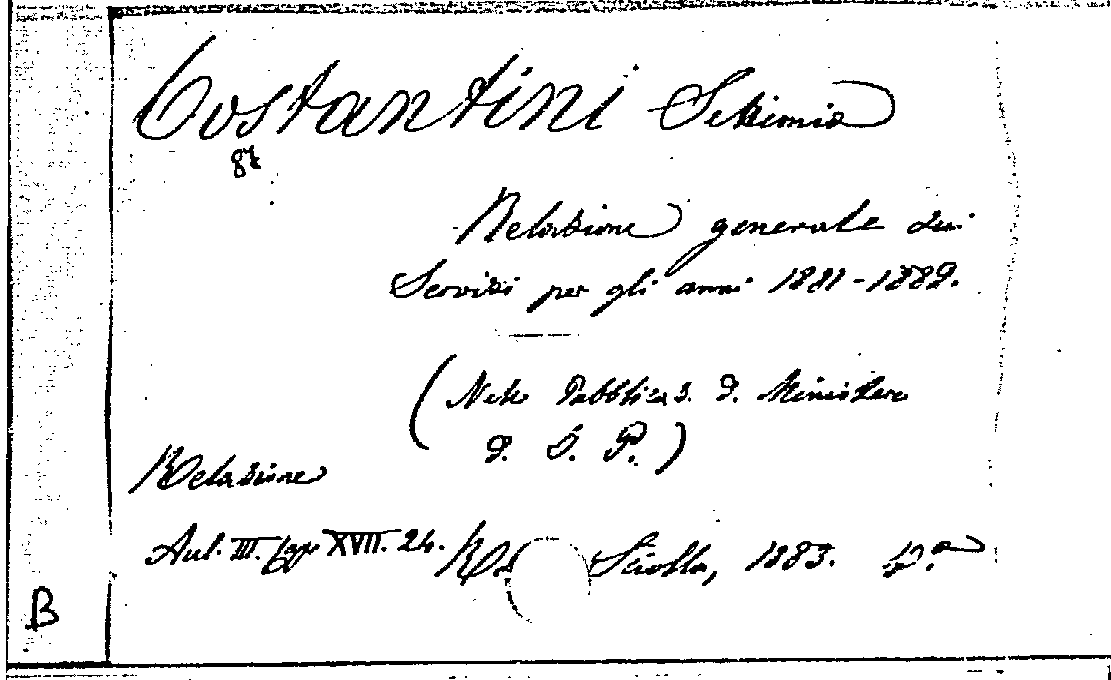 Costantini Settimio
87
Relazione generale dei
Servizi per gli anni 1881-1882.
(Nelle Pubblicaz. d. Ministero
d. I. P.)
Relazione
Aul. III. Capp XVII. 24. Ro Sciolla, 1883. 4.º
B